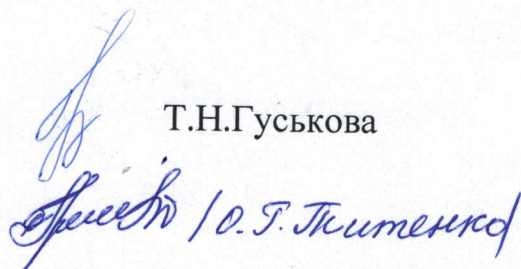 Т.Н.Гуськова
/ О.Г. Титенко/